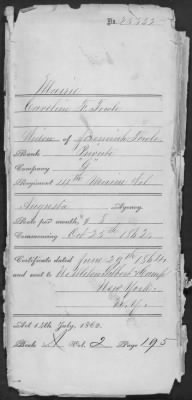 No. 25722
Maine
Caroline F. Towle
Widow of Jeremiah Towle
Rank Private
Company G
Regiment 14th Maine Vol
Augusta Agency
Rate per month, $ 8
Commencing Oct 25th 1862.
Certificate dated June 29th 1864
and sent to
New York
N.Y.
Act 14th July, 1862.
Book A Vol. 2 Page 195